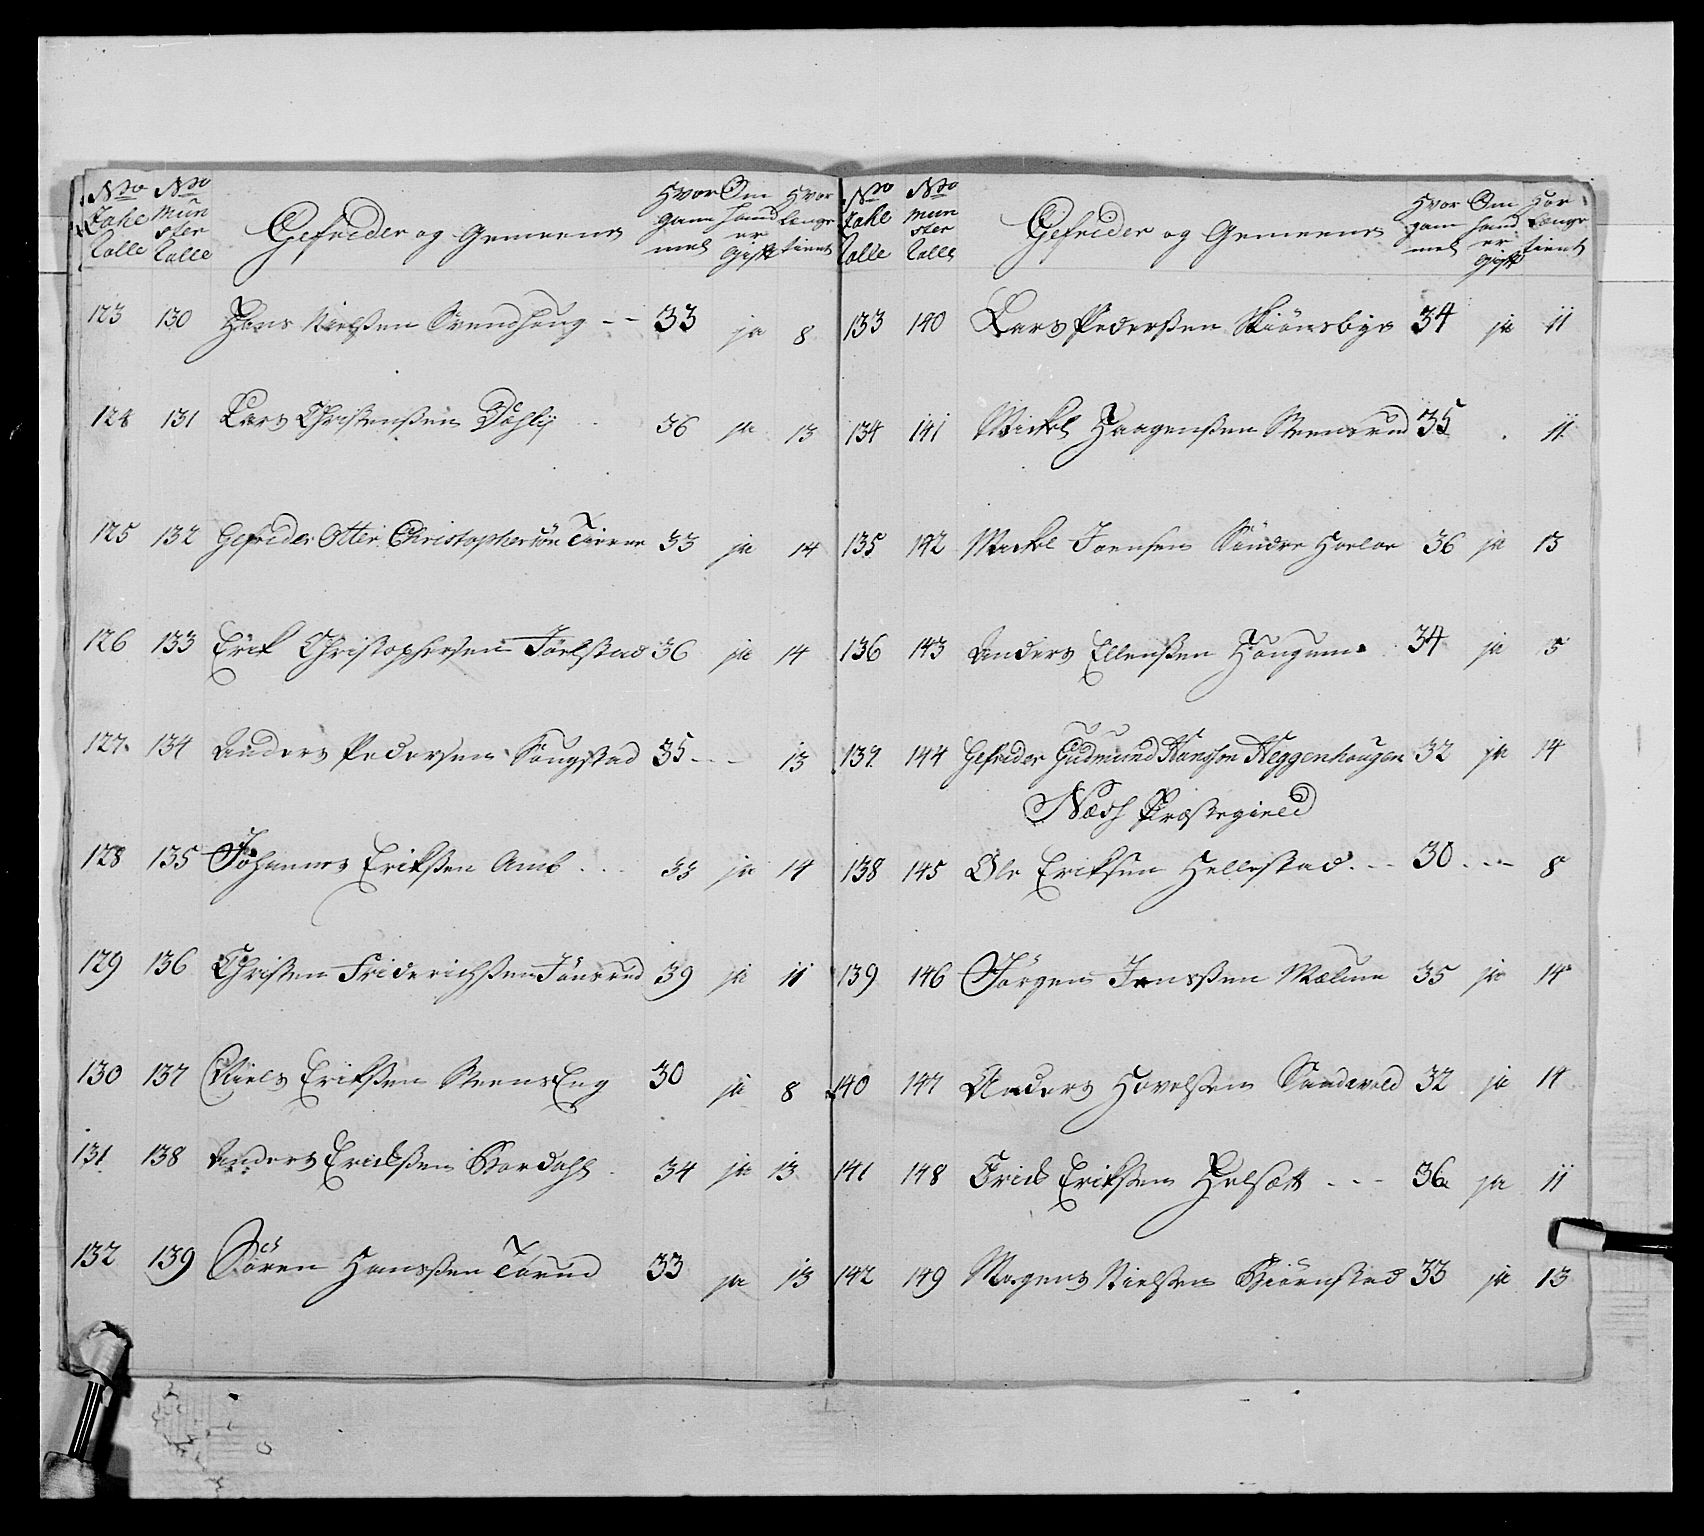 No Zahe Rolle No Mün ster Rolle Gefreider og Gemeene Hvor gam mel Om hand er Gift Hvor Lenge tient
123 130 Hans Nielssen Svendhoug -- 33 ja 8
124 131 Lars Christenssen Dæhlj 36 ja 13
125 132 Gefreider Otter Christophersön 33 ja 14
126 133 Erik Christophersen Jörlstad 36 ja 14
127. 134 Anders Pedersen Sougstad 35 - - 13
128 135 Johannes Erikssen Amb . . . 33 ja 14
129 136 Christen Friderichssen Jönsrud 39 ja 11
130 137 Niels Erikssen SteensEng 30 ja 8
131 138 Anders Erickssen Bardahl 34 ja 13
132 139 Sören Hanssen Torud 33 ja 13
No Zahe Rolle No Mün ster Rolle Gefreider og Gemeene Hvor gam mel Om hand er Gift Hvor Lenge tient
133 140 Lars Pederssen Skiönsbye 34 ja 11
134 141 Mickel Haagenssen Steensrud 35 . 11
135 142 Mickel Joensen Söndre 36 ja 13
136 143 Anders Ellenssen Hougum 34 ja 5
137 144 Gefreider Gudmund Hansson Heggenhougen 32 ja 14
Næss Præstegield
138 145 Ole Eriksen Hellestad. -- 30 . -- 8
139 146 Jörgen Jenssen Mælum 35 ja 14
140 147 Anders Hovelssen Sandvold 32 ja 14
141 148 Erick Erikssen Helsætt - - - 36 ja 11
142 149 Mogens Nielsen Biörnstad 33 ja 13